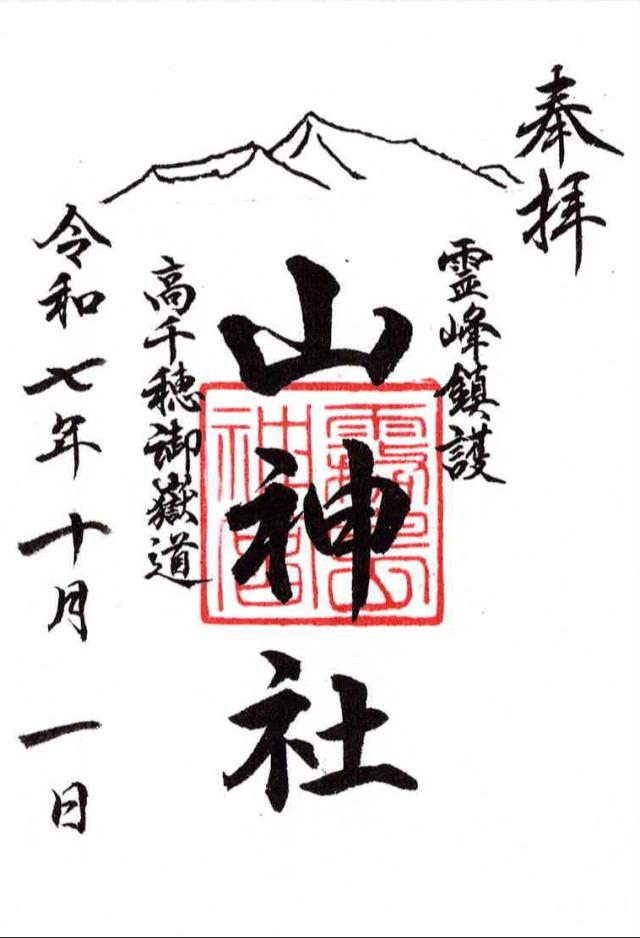 奉拝
霊峰鎮護
山神社
霧島
神宮
高千穂御嶽道
令和七年十月一日